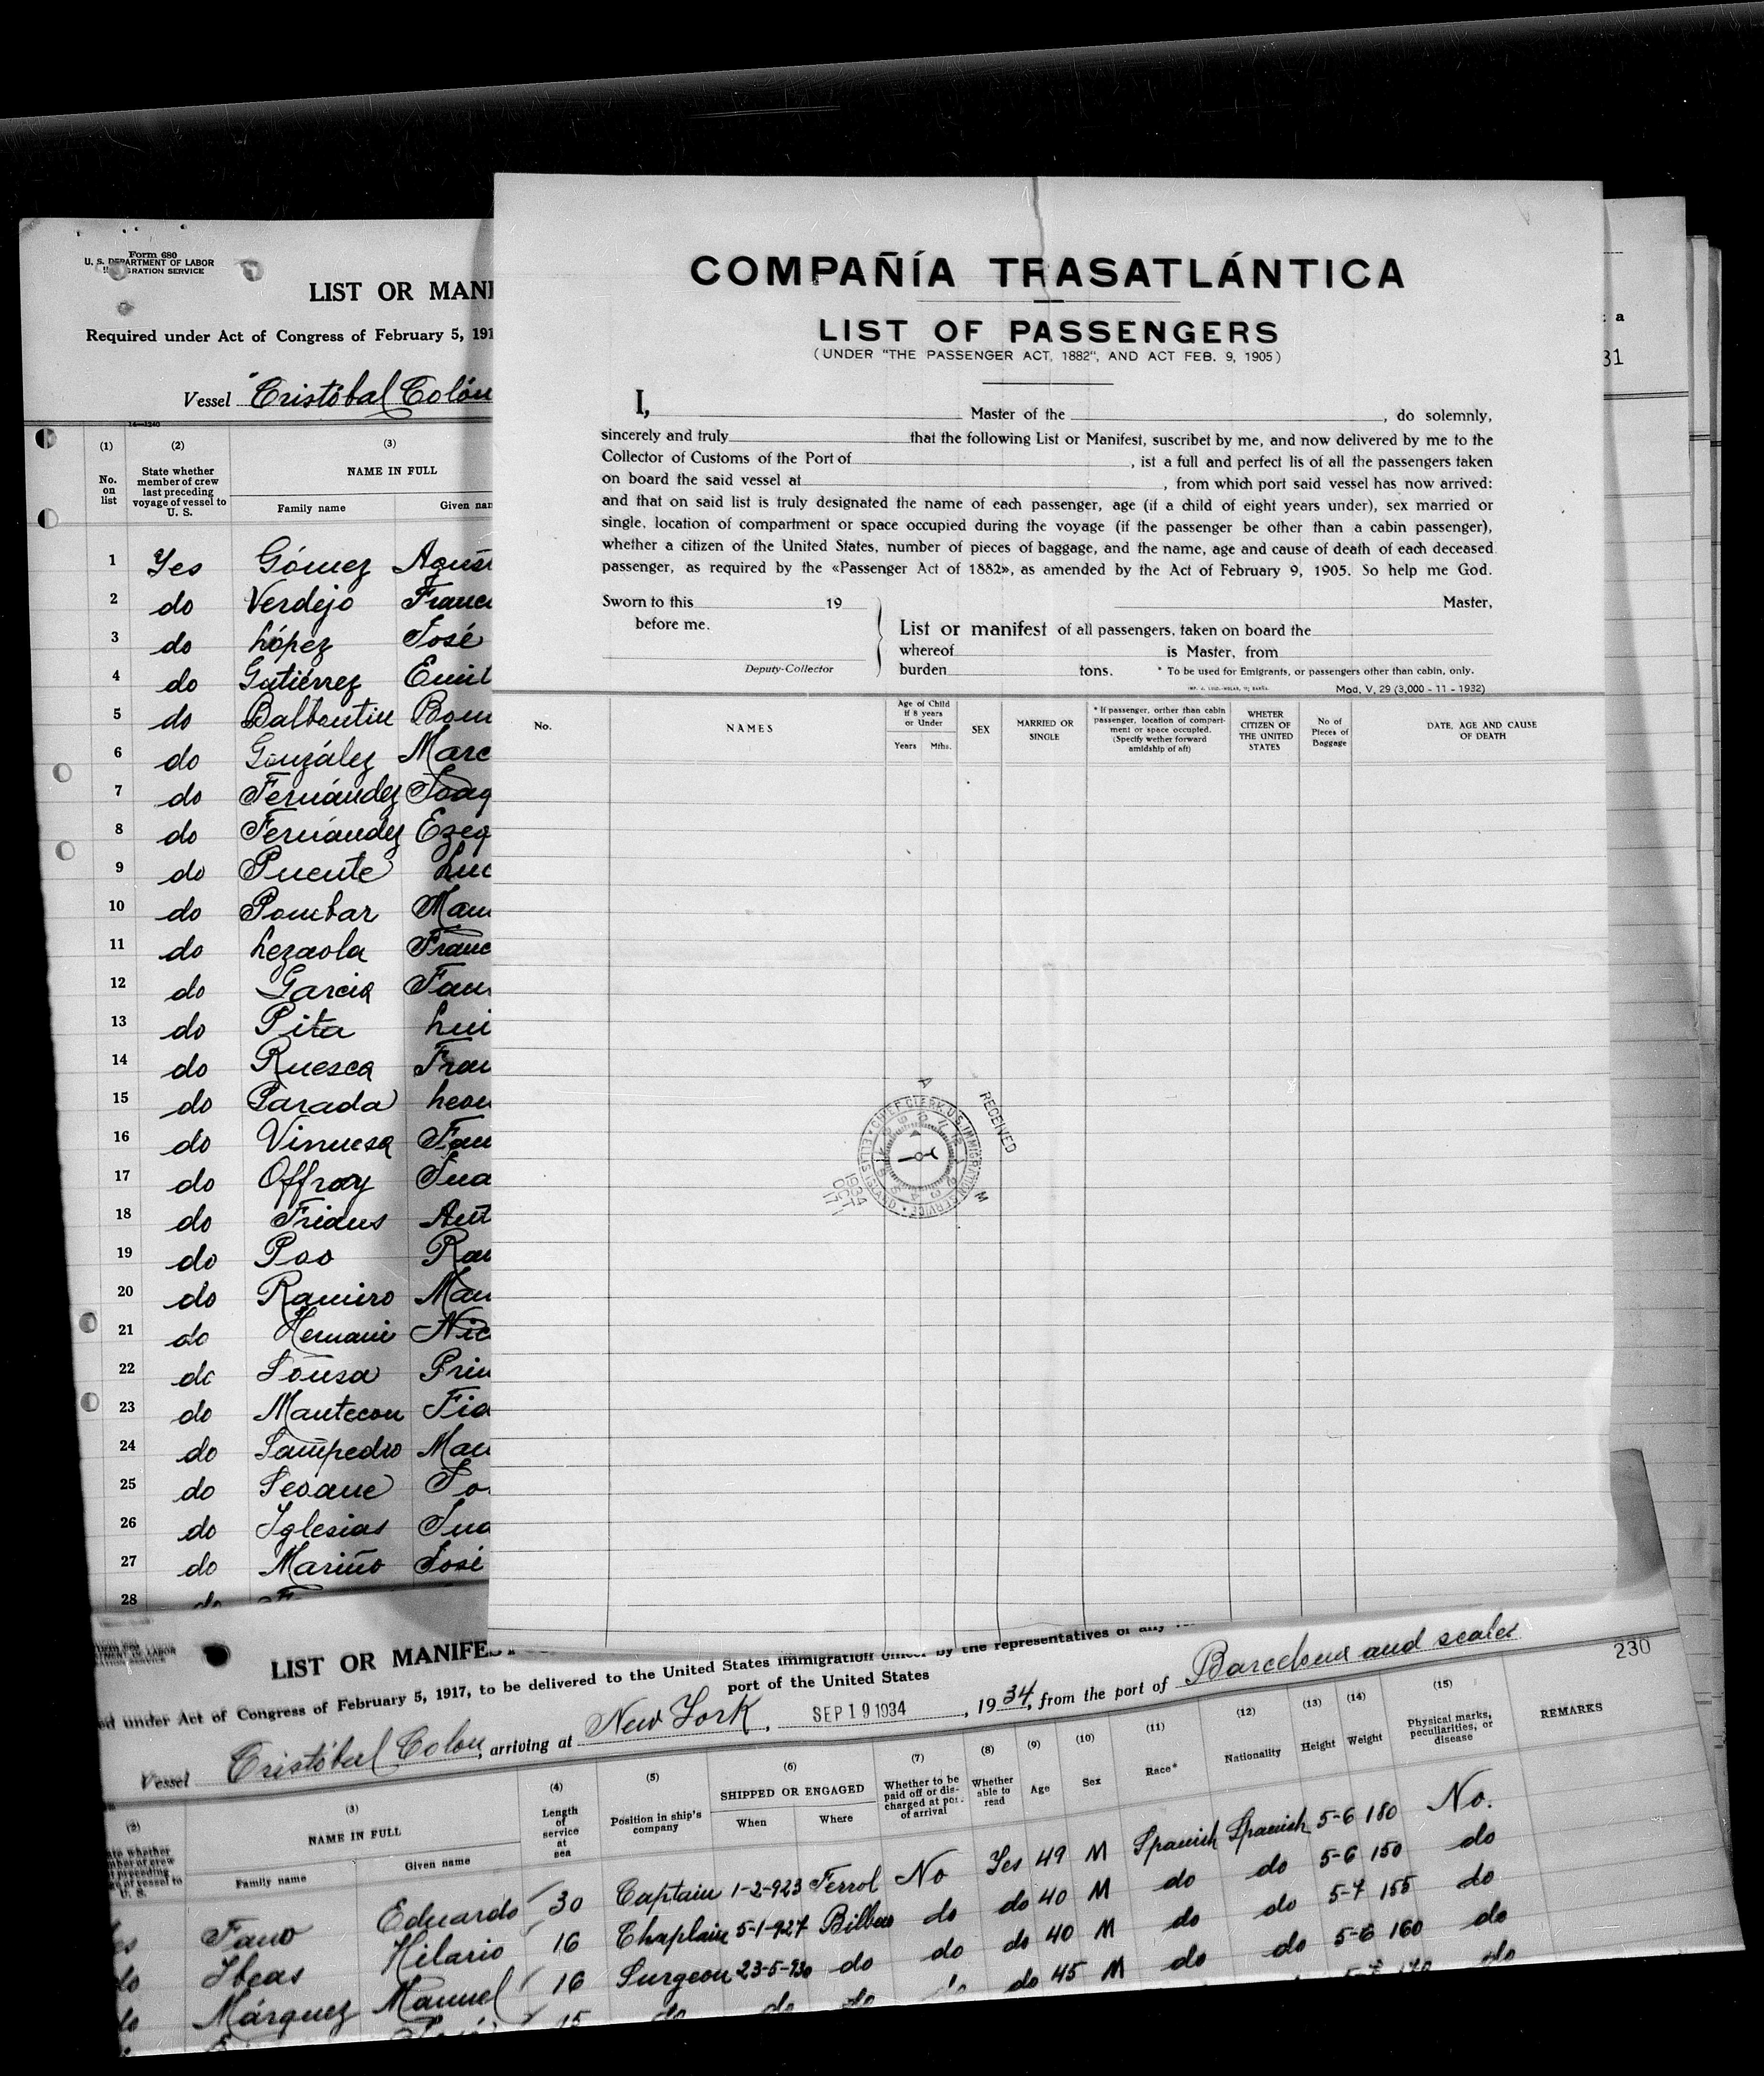 Form 680
U. S. DEPARTMENT OF LABOR
IMMIGRATION SERVICE
LIST OR MANI
Required under Act of Congress of February 5, 191
Vessel Cristóbal Colón
16—1240
(1) (2) (3)
No. on list
State whether member of crew last preceding voyage of vessel to U. S.
NAME IN FULL
Family name Given nam
1 Yes Gómez Agust
2 do Verdejo Franc
3 do López José
4 do Gutiérrez Emil
5 do Balbontin Bom
6 do González Marc
7 do Fernández Joaq
8 do Fernández Ezeq
9 do Puente Luc
10 do Pombar Man
11 do Lezaola Franc
12 do Garcia Fau
13 do Pita Lui
14 do Ruesca Fran
15 do Parada Leon
16 do Vinuesa
17 do Offroy Jua
18 do Frians Ant
19 do Poo Ra
20 do Ramiro Man
21 do Hernani Nic
22 do Sousa Prim
23 do Mantecon Fid
24 do Sampedro Man
25 do Seoane Jo
26 do Iglesias Jua
27 do Mariño José
28 do
COMPAÑÍA TRASATLÁNTICA
LIST OF PASSENGERS
(UNDER "THE PASSENGER ACT, 1882", AND ACT FEB. 9, 1905)
I, Master of the , do solemnly,
sincerely and truly that the following List or Manifest, suscribet by me, and now delivered by me to the
Collector of Customs of the Port of , ist a full and perfect lis of all the passengers taken
on board the said vessel at , from which port said vessel has now arrived:
and that on said list is truly designated the name of each passenger, age (if a child of eight years under), sex married or
single, location of compartment or space occupied during the voyage (if the passenger be other than a cabin passenger),
whether a citizen of the United States, number of pieces of baggage, and the name, age and cause of death of each deceased
passenger, as required by the «Passenger Act of 1882», as amended by the Act of February 9, 1905. So help me God.
Sworn to this 19
before me.
Deputy-Collector
Master,
List or manifest of all passengers, taken on board the
whereof is Master, from
burden tons. * To be used for Emigrants, or passengers other than cabin, only.
Mod. V, 29 (3,000 - 11 - 1932)
No.
NAMES
Age of Child if 8 years or Under
Years Mths.
SEX
MARRIED OR SINGLE
* If passenger, orther than cabin passenger, location of compartment or space occupied. (Specify wether forward amidship of aft)
WHETER CITIZEN OF THE UNITED STATES
No of Pieces of Baggage
DATE, AGE AND CAUSE OF DEATH
RECEIVED
A M
CHIEF CLERK U.S. IMMIGRATION SERVICE • ELLIS ISLAND
1934 OCT 17
: a
31
230
LIST OR MANIFES
ed under Act of Congress of February 5, 1917, to be delivered to the United States immigration officer by the representatives of any
port of the United States
Vessel Cristóbal Colon, arriving at New York, SEP 19 1934, 1934, from the port of Barcelona and scales
(2) (3) (4) (5) (6) (7) (8) (9) (10) (11) (12) (13) (14) (15)
NAME IN FULL
Family name Given name
Length of service at sea
Position in ship's company
SHIPPED OR ENGAGED
When Where
Whether to be paid off or discharged at port of arrival
Whether able to read
Age
Sex
Race*
Nationality
Height
Weight
Physical marks, peculiarities, or disease
REMARKS
es Fano Eduardo 30 Captain 1-2-923 Ferrol No Yes 49 M Spanish Spanish 5-6 180 No.
do Ibeas Hilario 16 Chaplain 5-1-927 Bilbao do do 40 M do do 5-6 150 do
do Márquez Manuel 16 Surgeon 23-5-930 do do do 40 M do do 5-7 155 do
15 do do do do 45 M do do 5-6 160 do
do